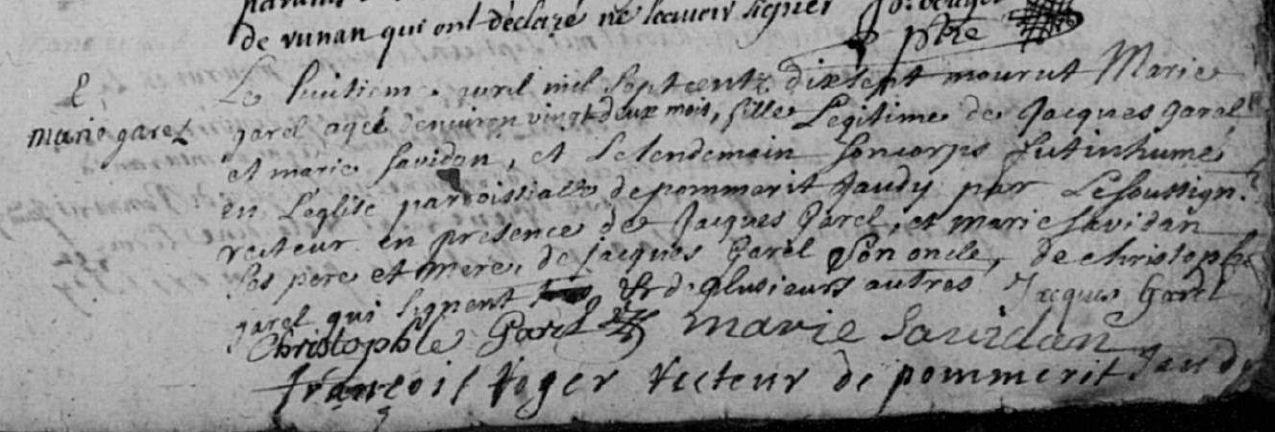 de runan qui ont déclaré ne scavoir signer
ptre
Le huitieme avril mil sept centz dix sept mourut Marie
marie garel
garel agée d'environ vingt deux mois, fille Legitime de Jacques garel
et marie savidan, et Lelendemain son corps fut inhumé
en L'eglise paroissialle de pommerit Jaudy par Le soussigné
recteur en presence de Jacques Garel, et marie savidan
ses pere et mere, de jacques Garel son oncle, de christophe
garel qui signent et de plusieurs autres Jacques Garel
Christophle Garel marie Savidan
françois Voger recteur de pommerit Jaudy